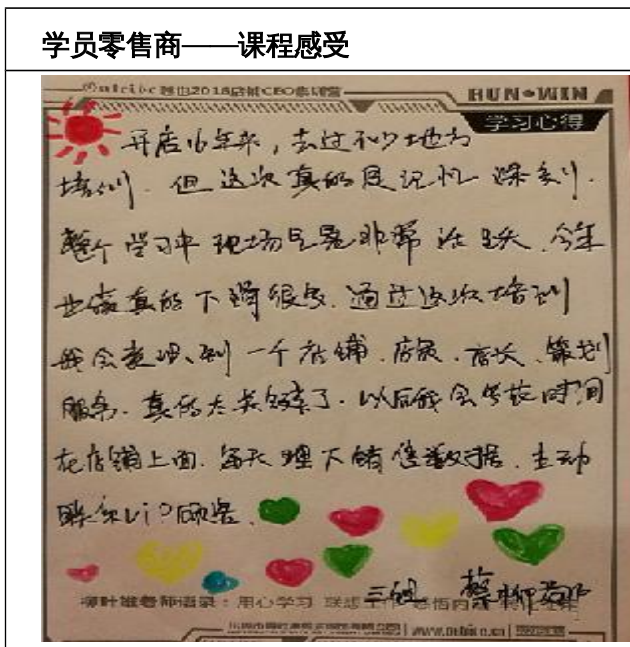 学员零售商——课程感受
2016店铺CEO集训营
RUN WIN
学习心得
开店16年来，去过不少地方
培训．但这次真的是记忆深刻．
整个学习中现场气氛非常活跃．今年
业绩真的下滑很多．通过这次培训
我会意识到一个店铺．店员．店长．策划
服务．真的太关键了．以后我会多花时间
在店铺上面．每天理下销售数据．主动
联系VIP顾客．
三组 蔡柳
柳叶雄老师语录：用心学习 联想工作 感悟内